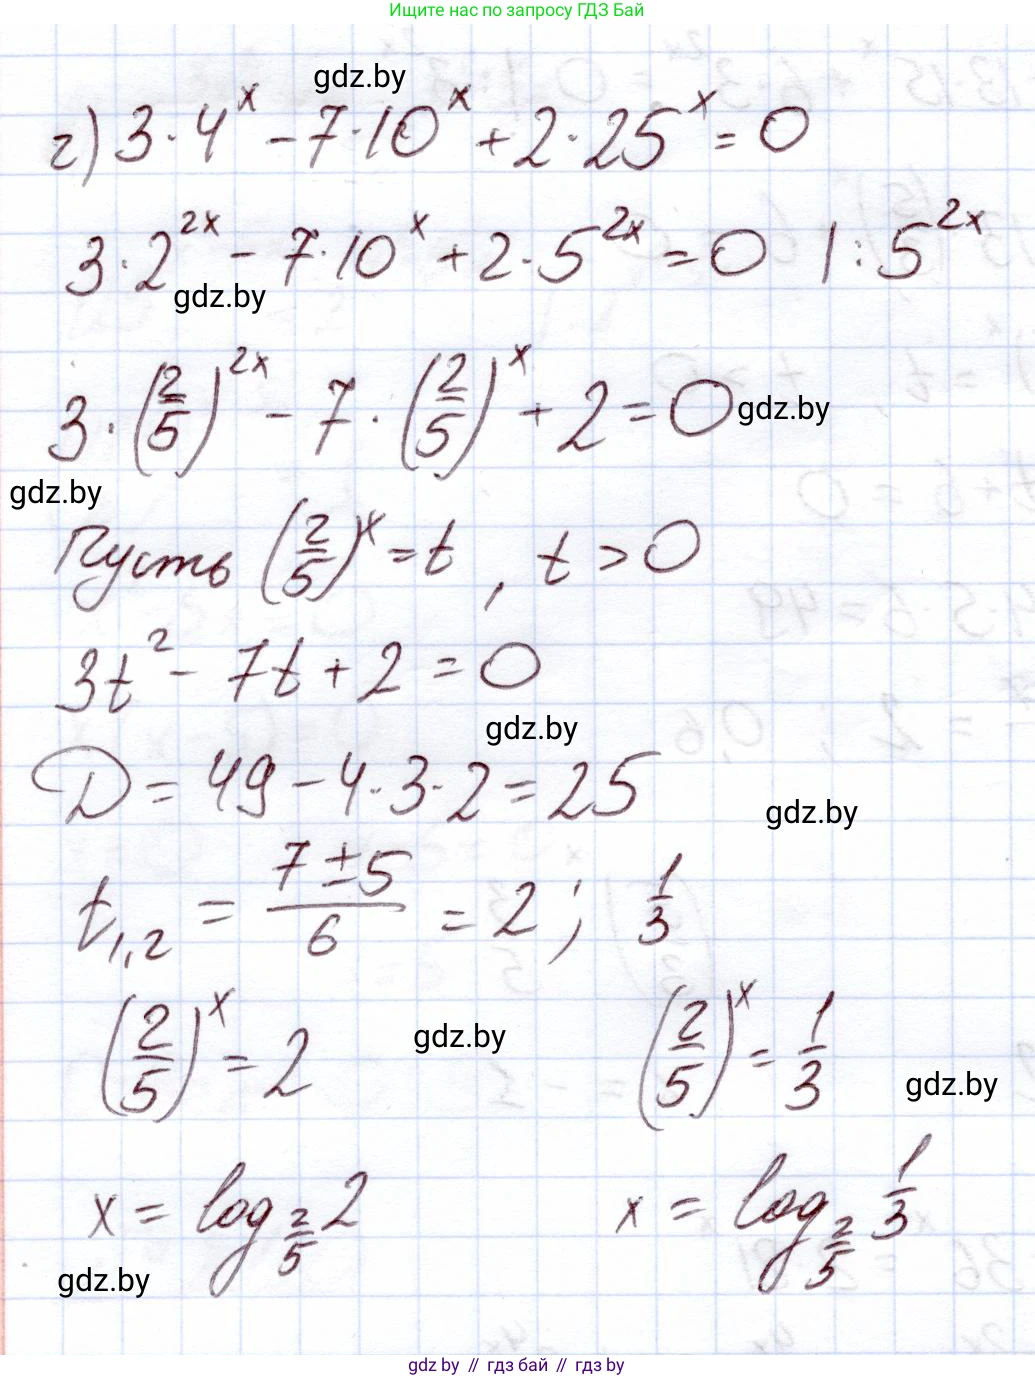 Ищите нас по запросу ГДЗ Бай
gdz.by
г) 3·4^x - 7·10^x + 2·25^x = 0
3·2^{2x} - 7·10^x + 2·5^{2x} = 0 |:5^{2x}
gdz.by
3·(2/5)^{2x} - 7·(2/5)^x + 2 = 0
gdz.by
gdz.by
Пусть (2/5)^x = t, t > 0
3t² - 7t + 2 = 0
gdz.by
D = 49 - 4·3·2 = 25
gdz.by
t_{1,2} = (7 ± 5)/6 = 2; 1/3
(2/5)^x = 2 (2/5)^x = 1/3
gdz.by
gdz.by
x = log_{2/5} 2 x = log_{2/5} 1/3
gdz.by
gdz.by // гдз бай // гдз by